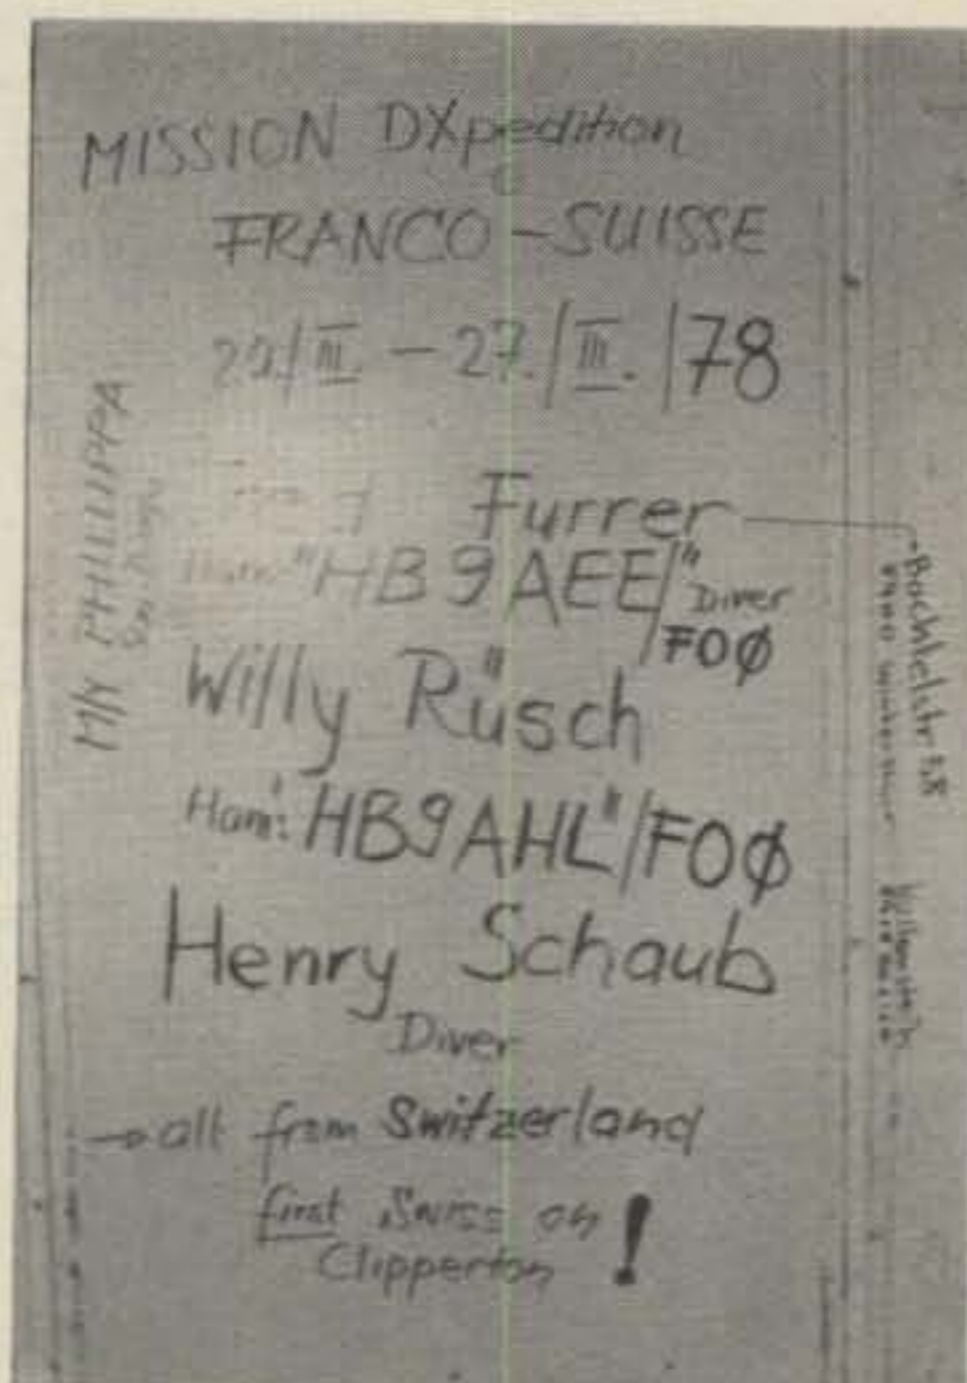 MISSION DXpedition
FRANCO-SUISSE
/III. - 27./III. /78
M/Y PHILLIPPA
Furrer
"HB9AEE/"
Diver
FOØ
Willy Rüsch
Ham: HB9AHL"/FOØ
Henry Schaub
Diver
→ all from Switzerland
first Swiss on
Clipperton !